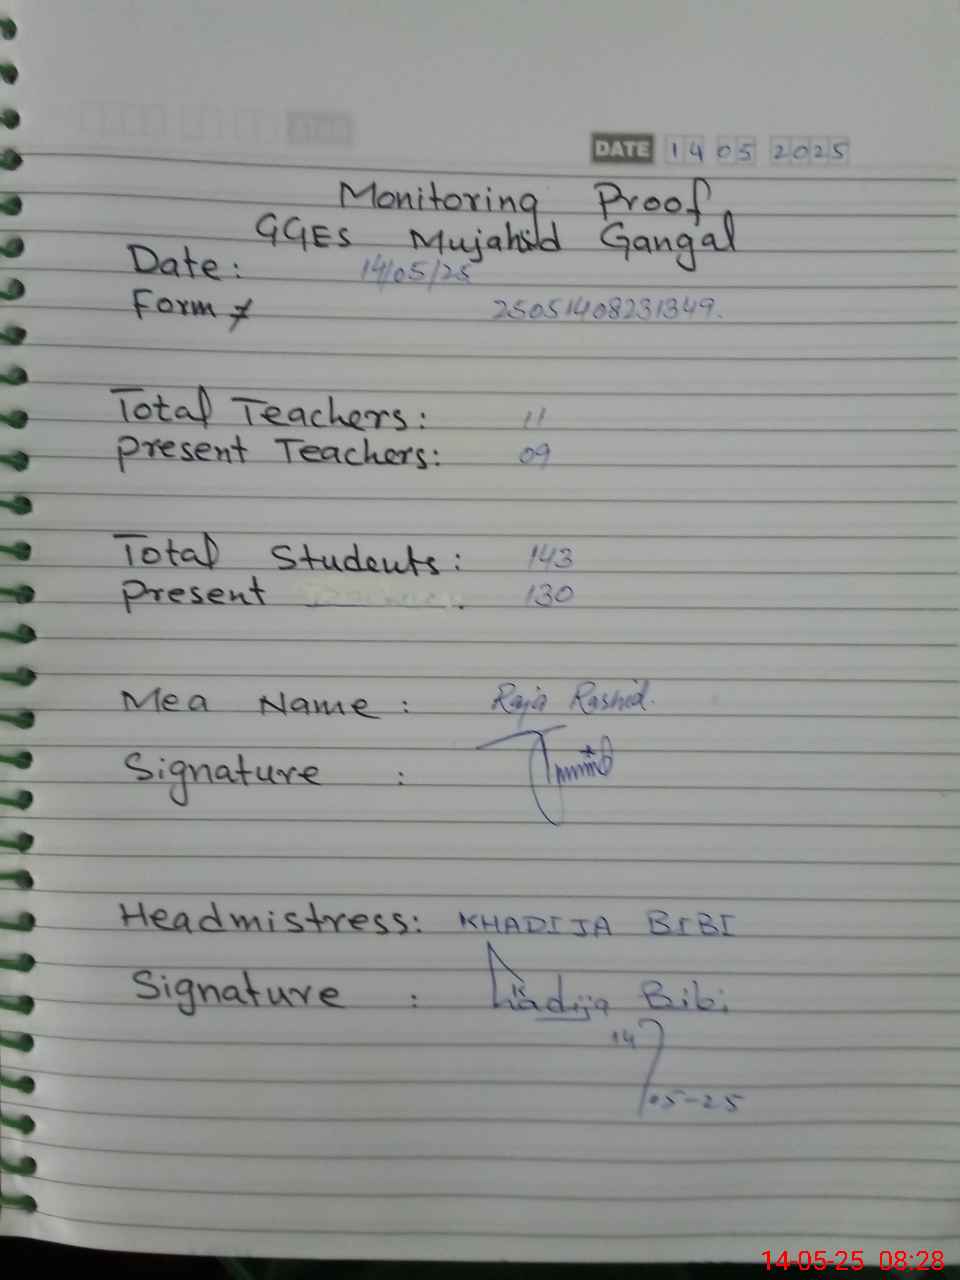 DATE 14 05 2025
Monitoring Proof
GGES Mujahid Gangal
Date: 14/05/25
Form # 25051408231349.
Total Teachers: 11
Present Teachers: 09
Total Students: 143
Present 130
Mea Name: Raja Rashid.
Signature :
Headmistress: KHADIJA BIBI
Signature : Khadija Bibi
14
05-25
14-05-25 08:28